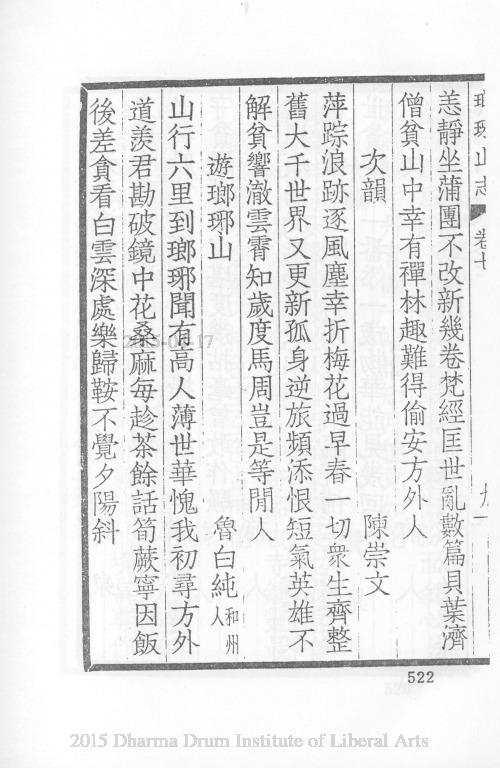 瑯琊山志　卷七　九一
恙靜坐蒲團不改新幾卷梵經匡世亂數篇貝葉濟
僧貧山中幸有禪林趣難得偷安方外人
次韻　陳崇文
萍踪浪跡逐風塵幸折梅花過早春一切衆生齊整
舊大千世界又更新孤身逆旅頻添恨短氣英雄不
解貧響澈雲霄知歲度馬周豈是等閒人
遊瑯琊山　魯白純和州人
山行六里到瑯琊聞有高人薄世華愧我初尋方外
道羨君勘破鏡中花桑麻每趁茶餘話筍蕨寧因飯
後差貪看白雲深處樂歸鞍不覺夕陽斜
522
2015 Dharma Drum Institute of Liberal Arts